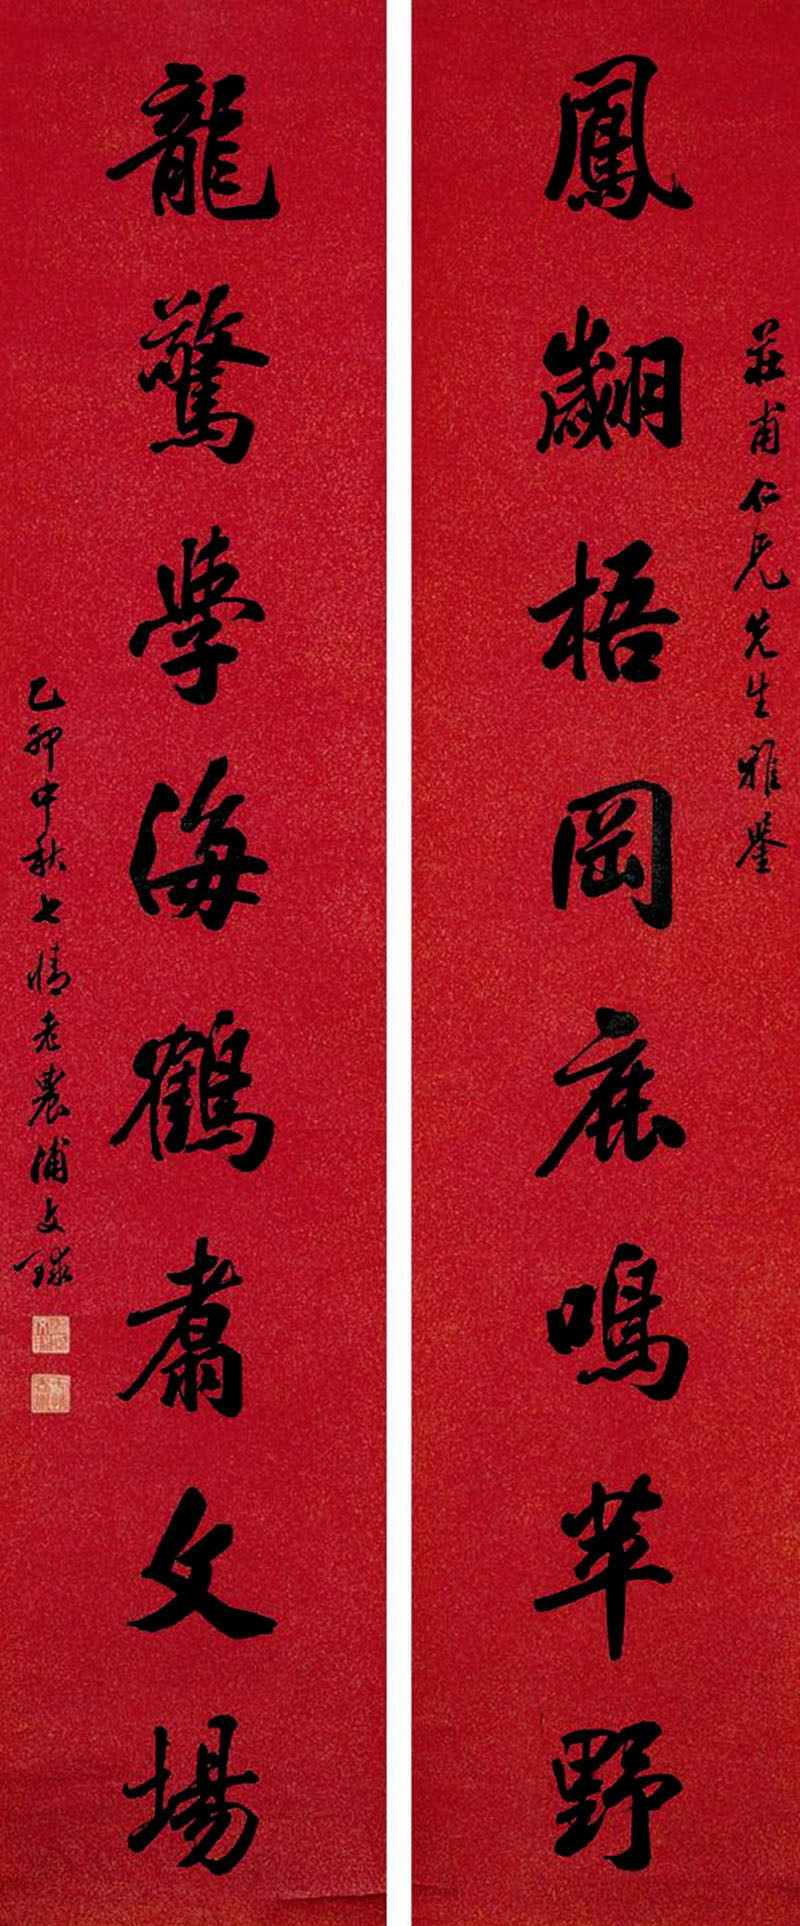 莊甫仁兄先生雅鑒
鳳翽梧岡鹿鳴苹野
龍驚學海鶴翥文場
乙卯中秋七情老農浦文球